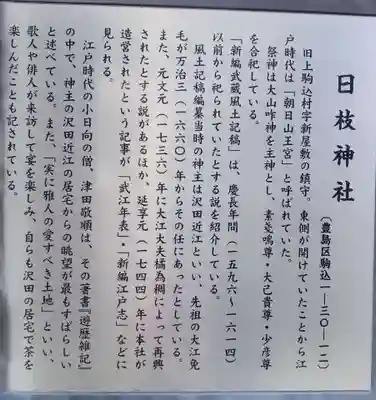 日枝神社
(豊島区駒込一―三〇―一二)
旧上駒込村字新屋敷の鎮守。東側が開けていたことから江
戸時代は「朝日山王宮」と呼ばれていた。
祭神は大山咋神を主神とし、素戔嗚尊・大己貴尊・少彦尊
を合祀している。
「新編武蔵風土記稿」は、慶長年間(一五九六~一六一四)
以前から祀られていたとする説を紹介している。
風土記稿編纂当時の神主は沢田近江といい、先祖の大江免
毛が万治三(一六六〇)年からその任にあったとしている。
また、元文元(一七三六)年に大江大夫橘為稠によって再興
されたとする説があるほか、延享元(一七四四)年に本社が
造営されたという記事が「武江年表」・「新編江戸志」などに
見られる。
江戸時代の小日向の僧、津田敬順は、その著書『遊歴雑記』
の中で、神主の沢田近江の居宅からの眺望が最もすばらしい
と述べている。また、「実に雅人の愛すべき土地」といい、
歌人や俳人が来訪して宴を楽しみ、自らも沢田の居宅で茶を
楽しんだことも記されている。